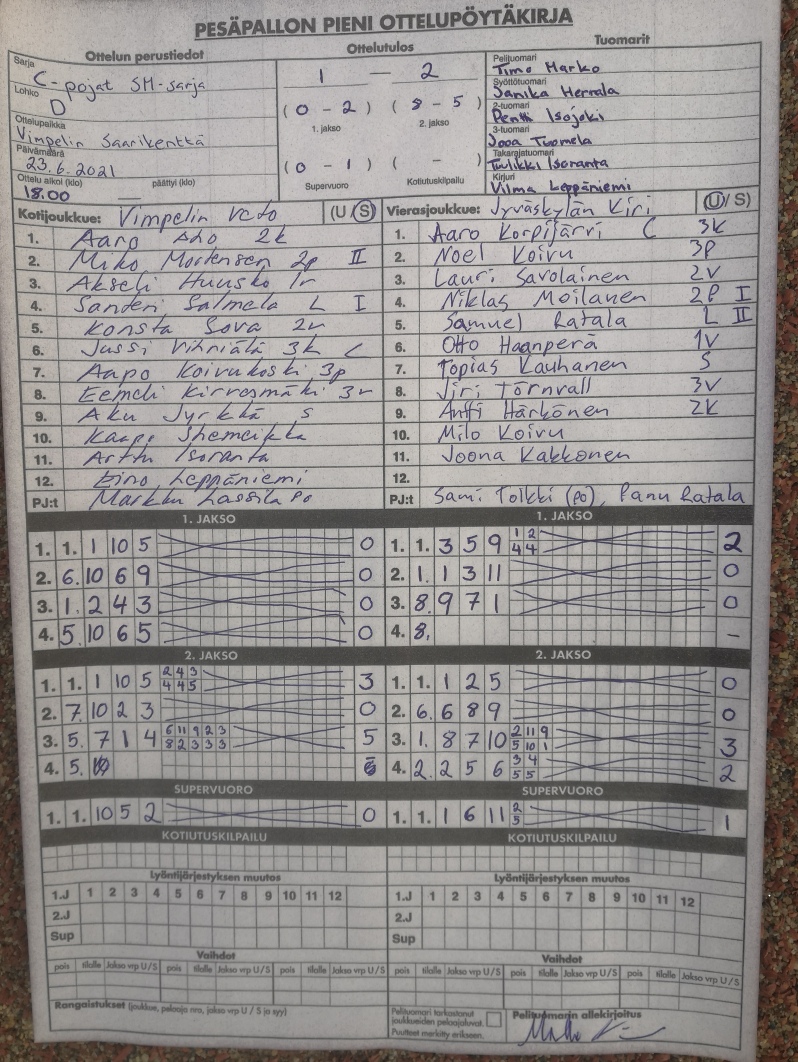 PESÄPALLON PIENI OTTELUPÖYTÄKIRJA
Ottelun perustiedot
Ottelutulos
Tuomarit
Sarja C-pojat SM-sarja
Lohko D
Ottelupaikka Vimpelin Saarikenttä
Päivämäärä 23.6.2021
Ottelu alkoi (klo) 18.00 päättyi (klo)
1 — 2
( 0 - 2 ) ( 8 - 5 )
1. jakso 2. jakso
( 0 - 1 ) ( - )
Supervuoro Kotiutuskilpailu
Pelituomari Timo Marko
Syöttötuomari Janika Herrala
2-tuomari Pentti Isojoki
3-tuomari Jooa Tuomela
Takarajatuomari Tuulikki Isoranta
Kirjuri Vilma Leppäniemi
Kotijoukkue: Vimpelin Veto (U / S)
1. Aaro Aho 2k
2. Miko Mortensen 2p II
3. Akseli Huusko 1v
4. Santeri Salmela L I
5. Konsta Sova 2v
6. Jussi Vihriälä 3k C
7. Aapo Koivukoski 3p
8. Eemeli Kirvesmäki 3v
9. Aku Jyrkkä S
10. Kaapo Shemeikka
11. Arttu Isoranta
12. Eino Leppäniemi
PJ:t Markku Lassila po
Vierasjoukkue: Jyväskylän Kiri (U / S)
1. Aaro Korpijärvi C 3k
2. Noel Koivu 3p
3. Lauri Savolainen 2V
4. Niklas Moilanen 2P I
5. Samuel Ratala L II
6. Otto Haanperä 1V
7. Topias Kauhanen S
8. Jiri Törnvall 3V
9. Antti Härkönen 2K
10. Milo Koivu
11. Joona Kakkonen
12.
PJ:t Sami Tolkki (po), Panu Ratala
1. JAKSO
1. 1. 1 10 5 0
2. 6. 10 6 9 0
3. 1. 2 4 3 0
4. 5. 10 6 5 0
1. JAKSO
1. 1. 3 5 9 1 2 0
4 4
2
2. 1. 1 3 11 0
3. 8. 9 7 1 0
4. 8. -
2. JAKSO
1. 1. 1 10 5 2 4 3 3
4 4 5
2. 7. 10 2 3 0
3. 5. 7 1 4 6 11 9 2 3 5
8 2 3 3 3
4. 5.
2. JAKSO
1. 1. 1 2 5 0
2. 6. 6 8 9 0
3. 1. 8 7 10 2 11 9 3
5 10 1
4. 2. 2 5 6 3 4 2
5 5
SUPERVUORO
1. 1. 10 5 2 0
SUPERVUORO
1. 1. 1 6 11 2 1
5
KOTIUTUSKILPAILU
KOTIUTUSKILPAILU
Lyöntijärjestyksen muutos
1.J 1 2 3 4 5 6 7 8 9 10 11 12
2.J
Sup
Lyöntijärjestyksen muutos
1.J 1 2 3 4 5 6 7 8 9 10 11 12
2.J
Sup
Vaihdot
pois tilalle Jakso vrp U/S pois tilalle Jakso vrp U/S pois tilalle Jakso vrp U/S
Vaihdot
pois tilalle Jakso vrp U/S pois tilalle Jakso vrp U/S pois tilalle Jakso vrp U/S
Rangaistukset (joukkue, pelaaja nro, jakso vrp U / S ja syy)
Pelituomari tarkastanut
joukkueiden pelaajaluvat.
Puutteet merkitty erikseen.
Pelituomarin allekirjoitus